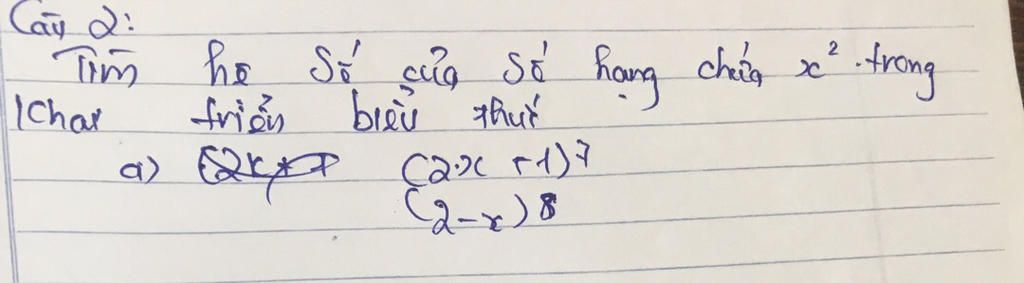 Câu 2:
Tìm hệ số của số hạng chứa x². trong
khai triển biểu thức
a) (2x+1)7
(2-x)8